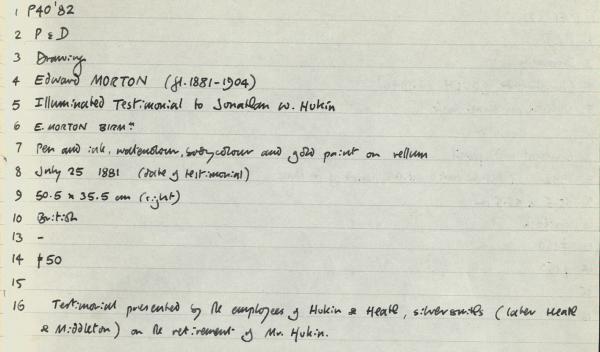 1 P40'82
2 P & D
3 Drawing
4 Edward MORTON (fl. 1881-1904)
5 Illuminated Testimonial to Jonathan W. Hukin
6 E. MORTON BIRMm
7 Pen and ink, watercolour, bodycolour and gold paint on vellum
8 July 25 1881 (date of testimonial)
9 50.5 x 35.5 cm (sight)
10 British
13 -
14 £50
15
16 Testimonial presented by the employees of Hukin & Heath, silversmiths (later Heath
& Middleton) on the retirement of Mr. Hukin.